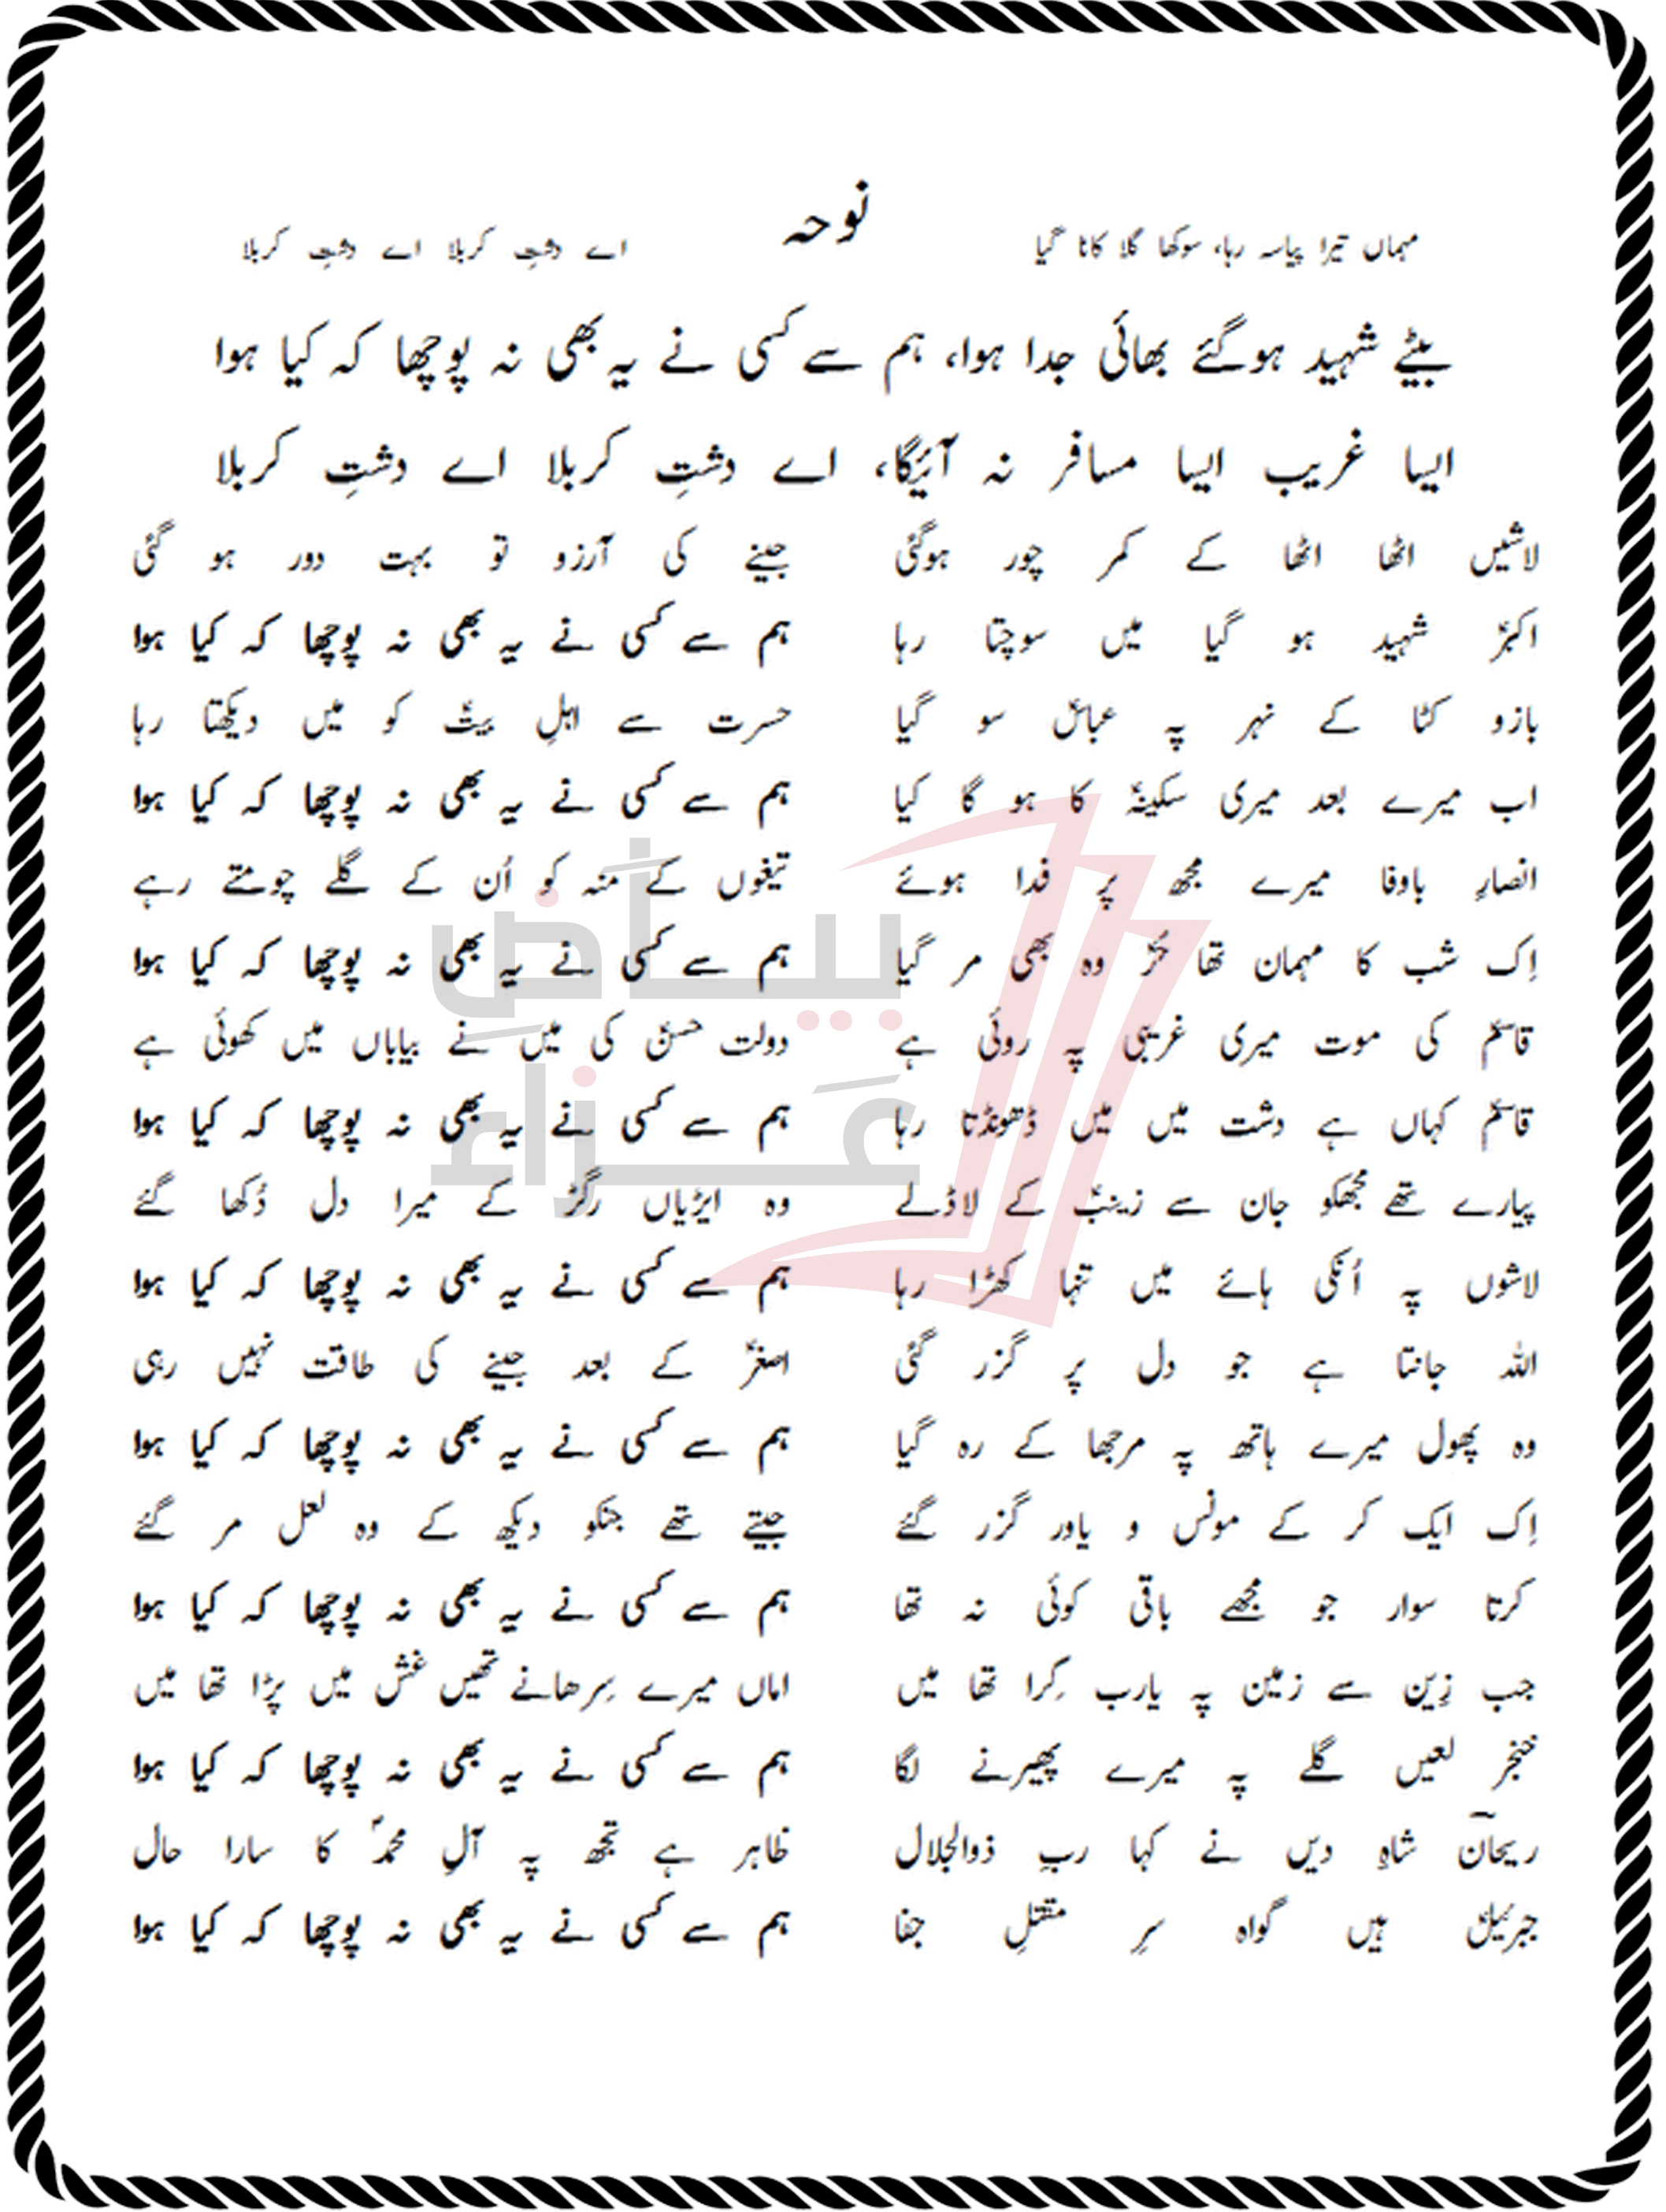 نوحہ
مہماں تیرا پیاسہ رہا، سوکھا گلا کاٹا گیا اے دشتِ کربلا اے دشتِ کربلا
بیٹے شہید ہوگئے بھائی جدا ہوا، ہم سے کسی نے یہ بھی نہ پوچھا کہ کیا ہوا
ایسا غریب ایسا مسافر نہ آئیگا، اے دشتِ کربلا اے دشتِ کربلا
لاشیں اٹھا اٹھا کے کمر چور ہوگئی جینے کی آرزو تو بہت دور ہو گئی
اکبرؑ شہید ہو گیا میں سوچتا رہا ہم سے کسی نے یہ بھی نہ پوچھا کہ کیا ہوا
بازو کٹا کے نہر پہ عباسؑ سو گیا حسرت سے اہلِ بیتؑ کو میں دیکھتا رہا
اب میرے بعد میری سکینہؑ کا ہو گا کیا ہم سے کسی نے یہ بھی نہ پوچھا کہ کیا ہوا
انصارِ باوفا میرے مجھ پر فدا ہوئے تیغوں کے منہ کو اُن کے گلے چومتے رہے
اِک شب کا مہمان تھا حُرؑ وہ بھی مر گیا ہم سے کسی نے یہ بھی نہ پوچھا کہ کیا ہوا
قاسمؑ کی موت میری غریبی پہ روئی ہے دولت حسنؑ کی میں نے بیاباں میں کھوئی ہے
قاسمؑ کہاں ہے دشت میں میں ڈھونڈتا رہا ہم سے کسی نے یہ بھی نہ پوچھا کہ کیا ہوا
پیارے تھے مجھکو جان سے زینبؑ کے لاڈلے وہ ایڑیاں رگڑ کے میرا دل دُکھا گئے
لاشوں پہ اُنکی ہائے میں تنہا کھڑا رہا ہم سے کسی نے یہ بھی نہ پوچھا کہ کیا ہوا
اللہ جانتا ہے جو دل پر گزر گئی اصغرؑ کے بعد جینے کی طاقت نہیں رہی
وہ پھول میرے ہاتھ پہ مرجھا کے رہ گیا ہم سے کسی نے یہ بھی نہ پوچھا کہ کیا ہوا
اِک ایک کر کے مونس و یاور گزر گئے جیتے تھے جنکو دیکھ کے وہ لعل مر گئے
کرتا سوار جو مجھے باقی کوئی نہ تھا ہم سے کسی نے یہ بھی نہ پوچھا کہ کیا ہوا
جب زِین سے زمین پہ یارب گِرا تھا میں اماں میرے سِرھانے تھیں غش میں پڑا تھا میں
خنجر لعیں گلے پہ میرے پھیرنے لگا ہم سے کسی نے یہ بھی نہ پوچھا کہ کیا ہوا
ریحانؔ شاہِ دیں نے کہا ربِ ذوالجلال ظاہر ہے تجھ پہ آلِ محمدؐ کا سارا حال
جبرئیلؑ ہیں گواہ سرِ مقتلِ جفا ہم سے کسی نے یہ بھی نہ پوچھا کہ کیا ہوا
بیاضِ
عزاء